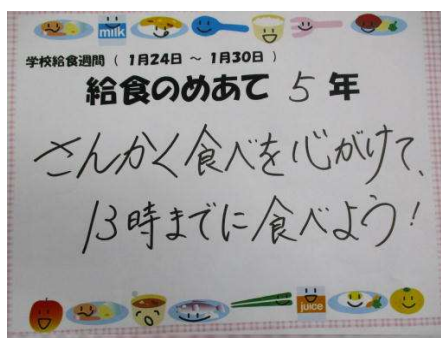 milk
学校給食週間 ( 1月24日 ～ 1月30日 )
給食のめあて 5 年
さんかく食べを心がけて、
13時までに食べよう!
juice